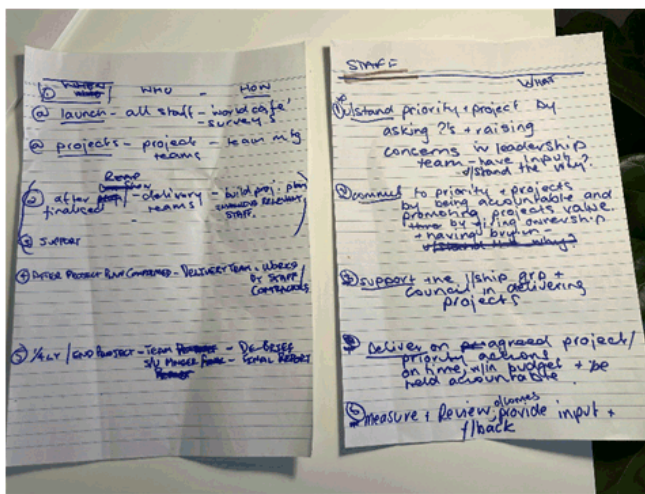 ① WHEN WHO - HOW
@ launch - all staff - 'world cafe'
survey's
@ projects - project - team mtg
teams
② after - delivery - build proj. plan
finalised teams
STAFF.
③ SUPPORT
④ AFTER PROJECT PLAN CONFIRMED - DELIVERY TEAM - WORKS
BY STAFF/
CONTRACTORS
⑤ 1/4LY / END PROJECT - TEAM - DE-BRIEF
- FINAL REPORT
STAFF
WHAT
① u/stand priority + project by
asking ?'s + raising
concerns in leadership
team - have input
u/stand the 'why'?
② commit to priority + projects
by being accountable and
promoting projects value
by ownership
+ having buy in
u/stand the why?
support the l/ship grp +
council in delivering
projects
Deliver on agreed project/
priority actions
on time, w/in budget + be
held accountable.
measure + Review, o/comes provide input +
f/back